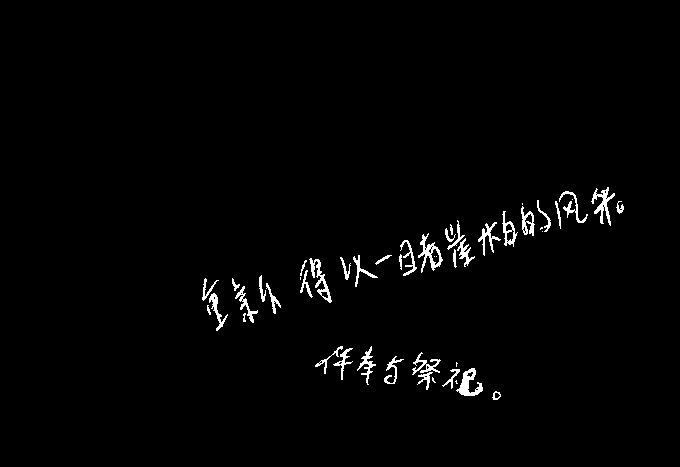 重新得以一睹崖柏的风采。
供奉与祭祀。